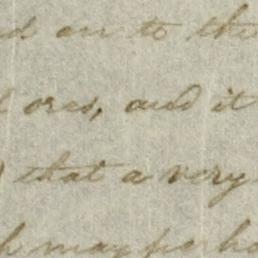 on to the
ores, and it
that a very
may perha